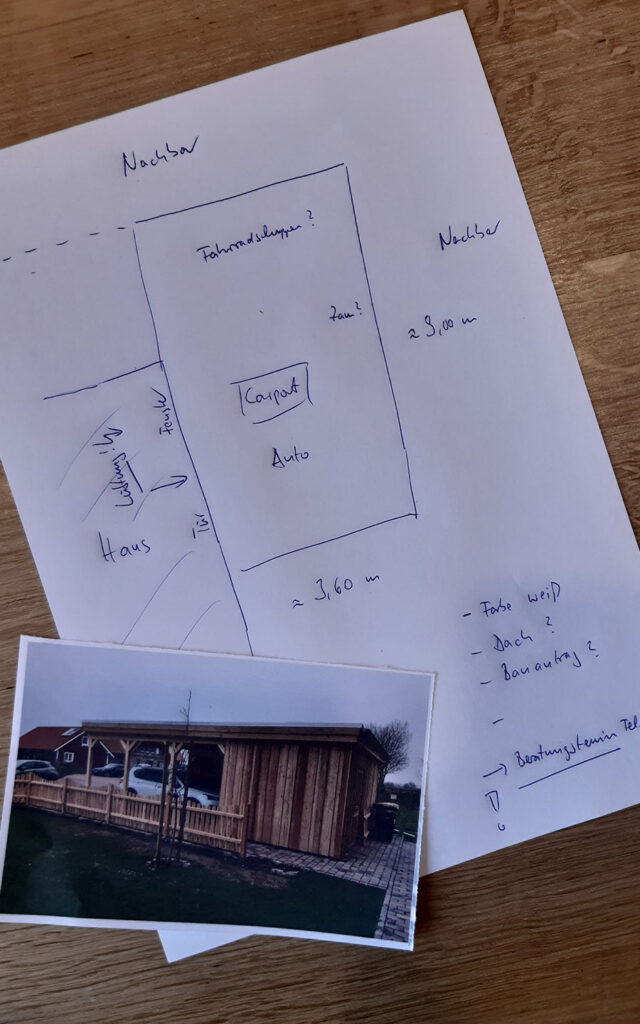 Nachbar
Fahrradschuppen?
Nachbar
Zaun?
≈ 9,00 m
Carport
Fenster
Auto
Lüftung!
Tür
Haus
≈ 3,60 m
- Farbe weiß
- Dach?
- Bauantrag?
-
→ Beratungstermin Tel.
!